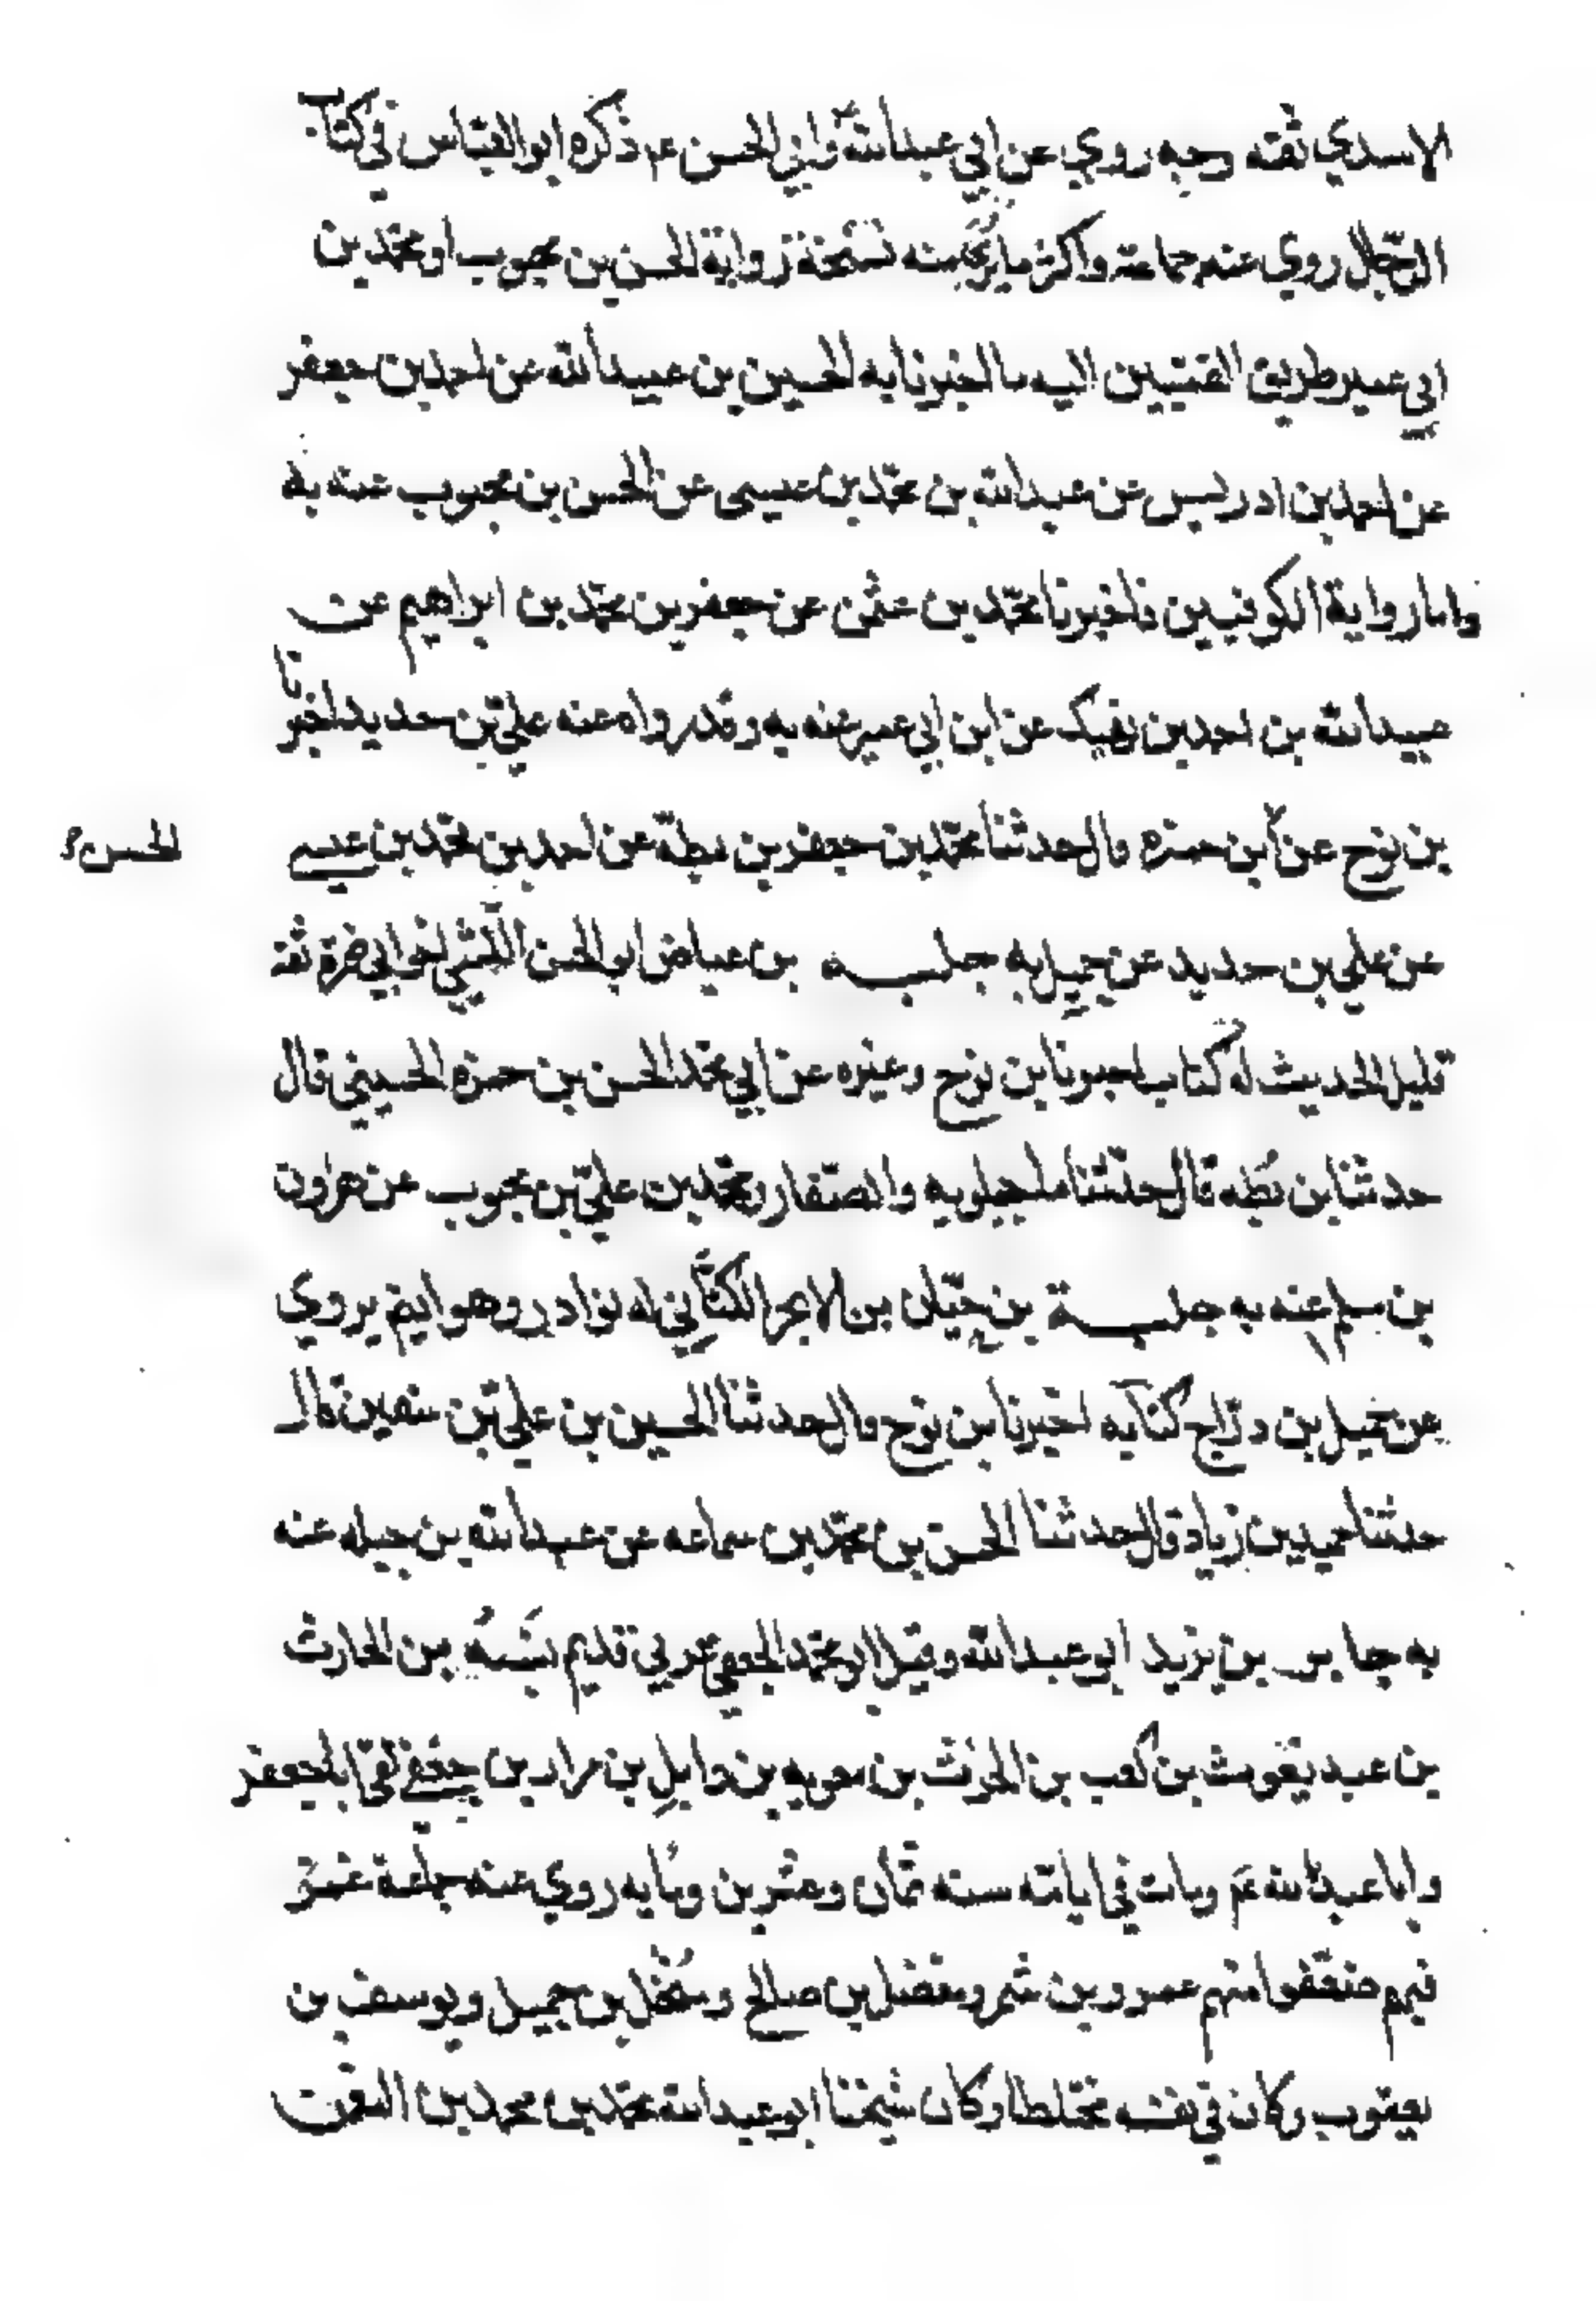 الاسدي ثقه وجه روي عن ابي عبدالله وابي الحسن عم ذكره ابو العباس في كتاب
الرجال روي عنه جماعة واكثر ما يرجع منه نسخة رواية الحسن بن محبوب او محمد بن
ابي عمير طريق القميين اليه ما اخبرنا به الحسين بن عبيدالله عن احمد بن جعفر
عن احمد بن ادريس عن عبدالله بن محمد بن عيسى عن الحسن بن محبوب عنه به
واما رواية الكوفيين فاخبرنا محمد بن عثمن عن جعفر بن محمد بن ابراهيم عن
عبيدالله بن احمد بن نهيك عن ابن ابي عمير عنه به وقد رواه عنه علي بن حديد اخبرنا
بن نوح عن ابن حمزه قال حدثنا محمد بن جعفر بن بطة عن احمد بن محمد بن عيسى
الحسن
عن علي بن حديد عن جميل به جلبه بن عياض ابو الحسن الليثي اخو ابي ضمرة ثقة
قليل الحديث له كتاب اخبرنا بن نوح وغيره عن ابي محمد الحسن بن حمزه الحسيني قال
حدثنا بن بطه قال حدثنا ماجيلويه والصفار ومحمد بن علي بن محبوب عن هرون
بن مسلم عنه به جلبة بن حيان بن الابجر الكناني له نوادر وهو ايضا يروي
عن جميل بن دراج كتابه اخبرنا بن نوح قال حدثنا الحسين بن علي بن سفين قال
حدثنا حميد بن زياد قال حدثنا الحسن بن محمد بن سماعه عن عبدالله بن جبله عنه
به جابر بن يزيد ابو عبدالله وقيل ابو محمد الجعفي عربي قديم نسبه بن الحارث
بن عبد يغوث بن كعب بن الحرث بن معويه بن وايل بن مرار بن جعفي لقي ابا جعفر
وابا عبدالله عم ومات في ايامه سنه ثمان وعشرين ومايه روي عنه جماعة غمز
فيهم ضعفوا منهم عمرو بن شمر ومفضل بن صالح ومنخل بن جميل ويوسف بن
يعقوب وكان في نفسه مختلطا وكان شيخنا ابو عبدالله محمد بن محمد بن النعمن